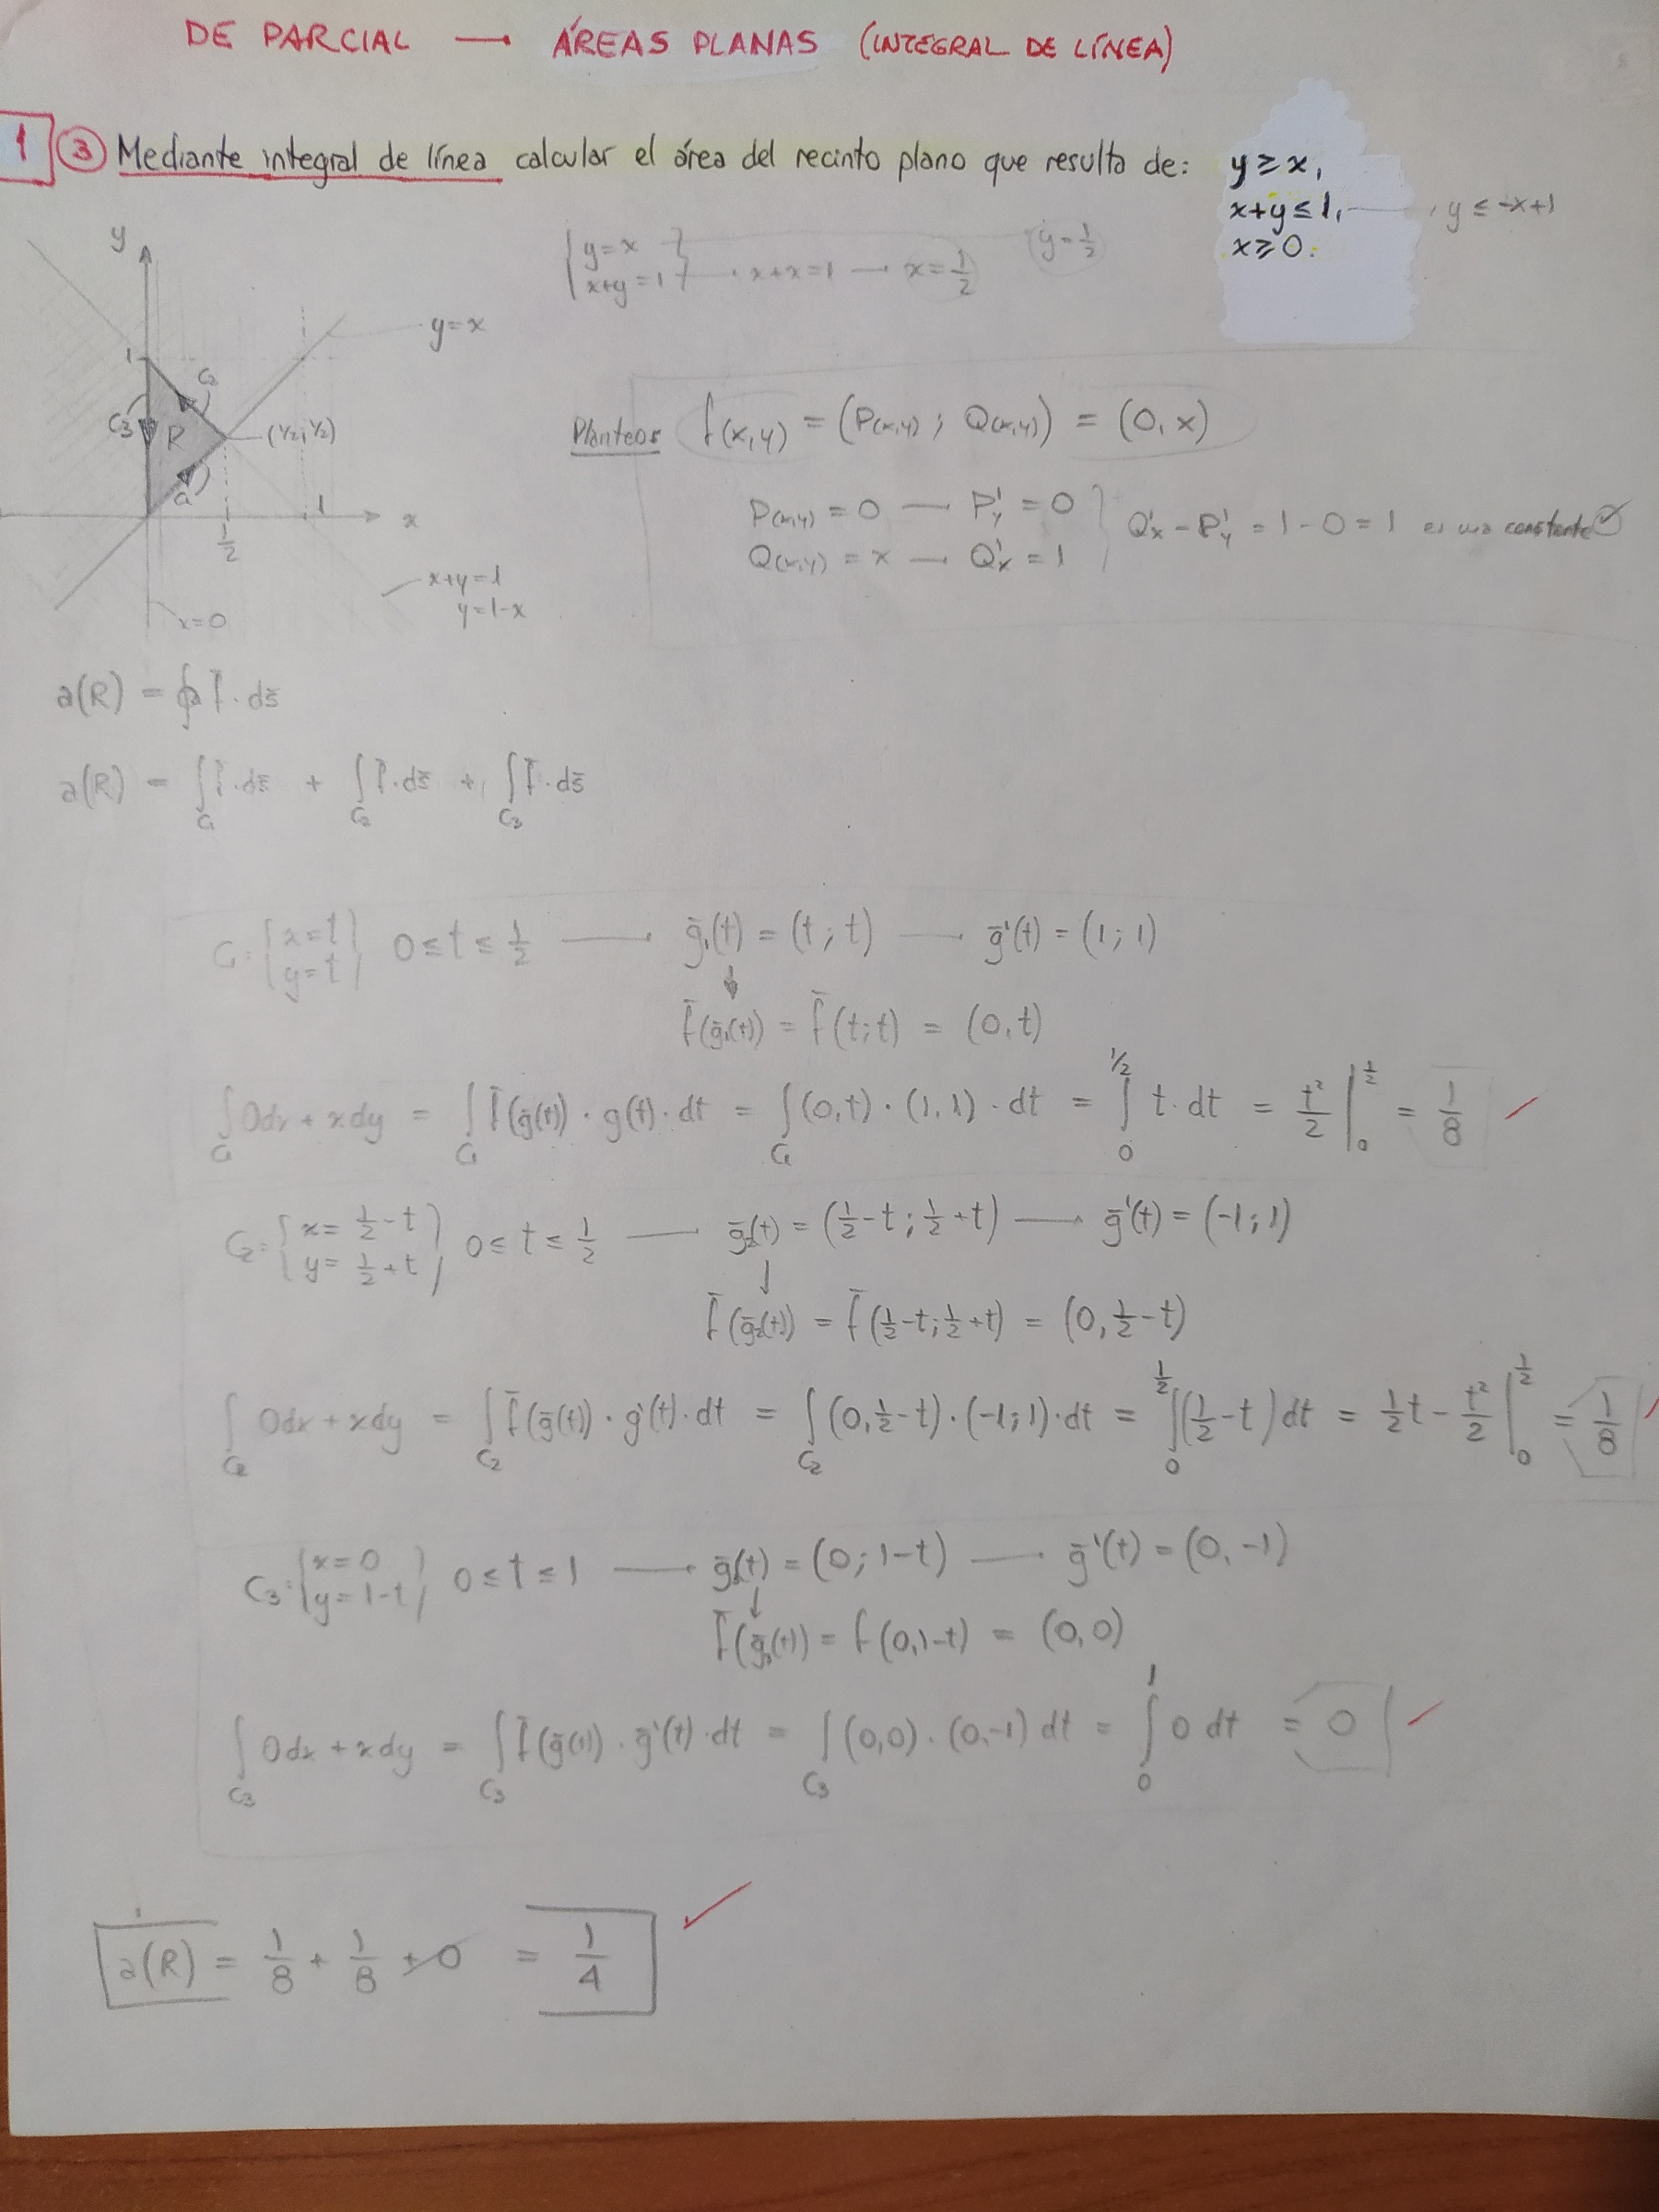 DE PARCIAL → ÁREAS PLANAS (INTEGRAL DE LÍNEA)
1 ③ Mediante integral de línea calcular el área del recinto plano que resulta de: y ≥ x,
x+y ≤ 1, y ≤ -x+1
x ≥ 0.
{ y = x
x+y = 1 } x+x=1 — x = 1/2 y = 1/2
y
y=x
1
C2
C3 R (1/2, 1/2)
C1
1/2 1 x
x+y=1
y=1-x
x=0
Planteos f̄(x,y) = (P(x,y) ; Q(x,y)) = (0, x)
P(x,y) = 0 — P'y = 0
Q(x,y) = x — Q'x = 1 } Q'x - P'y = 1 - 0 = 1 es una constante ✓
a(R) = ∮ f̄ · ds̄
a(R) = ∫C1 f̄ · ds̄ + ∫C2 f̄ · ds̄ + ∫C3 f̄ · ds̄
C1: { x = t
y = t } 0 ≤ t ≤ 1/2 → ḡ1(t) = (t ; t) → ḡ'(t) = (1 ; 1)
f̄(ḡ1(t)) = f̄(t ; t) = (0, t)
∫C1 0dx + xdy = ∫C1 f̄(ḡ(t)) · g(t) · dt = ∫C1 (0, t) · (1, 1) · dt = ∫0^1/2 t · dt = t²/2 |0^1/2 = 1/8
C2: { x = 1/2 - t
y = 1/2 + t } 0 ≤ t ≤ 1/2 → ḡ2(t) = (1/2 - t ; 1/2 + t) → ḡ'(t) = (-1 ; 1)
f̄(ḡ2(t)) = f̄(1/2 - t ; 1/2 + t) = (0, 1/2 - t)
∫C2 0dx + xdy = ∫C2 f̄(ḡ(t)) · g'(t) · dt = ∫C2 (0, 1/2 - t) · (-1 ; 1) · dt = ∫0^1/2 (1/2 - t) dt = 1/2 t - t²/2 |0^1/2 = 1/8
C3: { x = 0
y = 1-t } 0 ≤ t ≤ 1 → ḡ3(t) = (0 ; 1-t) → ḡ'(t) = (0, -1)
f̄(ḡ3(t)) = f(0, 1-t) = (0, 0)
∫C3 0dx + xdy = ∫C3 f̄(ḡ(t)) · ḡ'(t) · dt = ∫C3 (0,0) · (0,-1) dt = ∫0^1 0 dt = 0
a(R) = 1/8 + 1/8 + 0 = 1/4